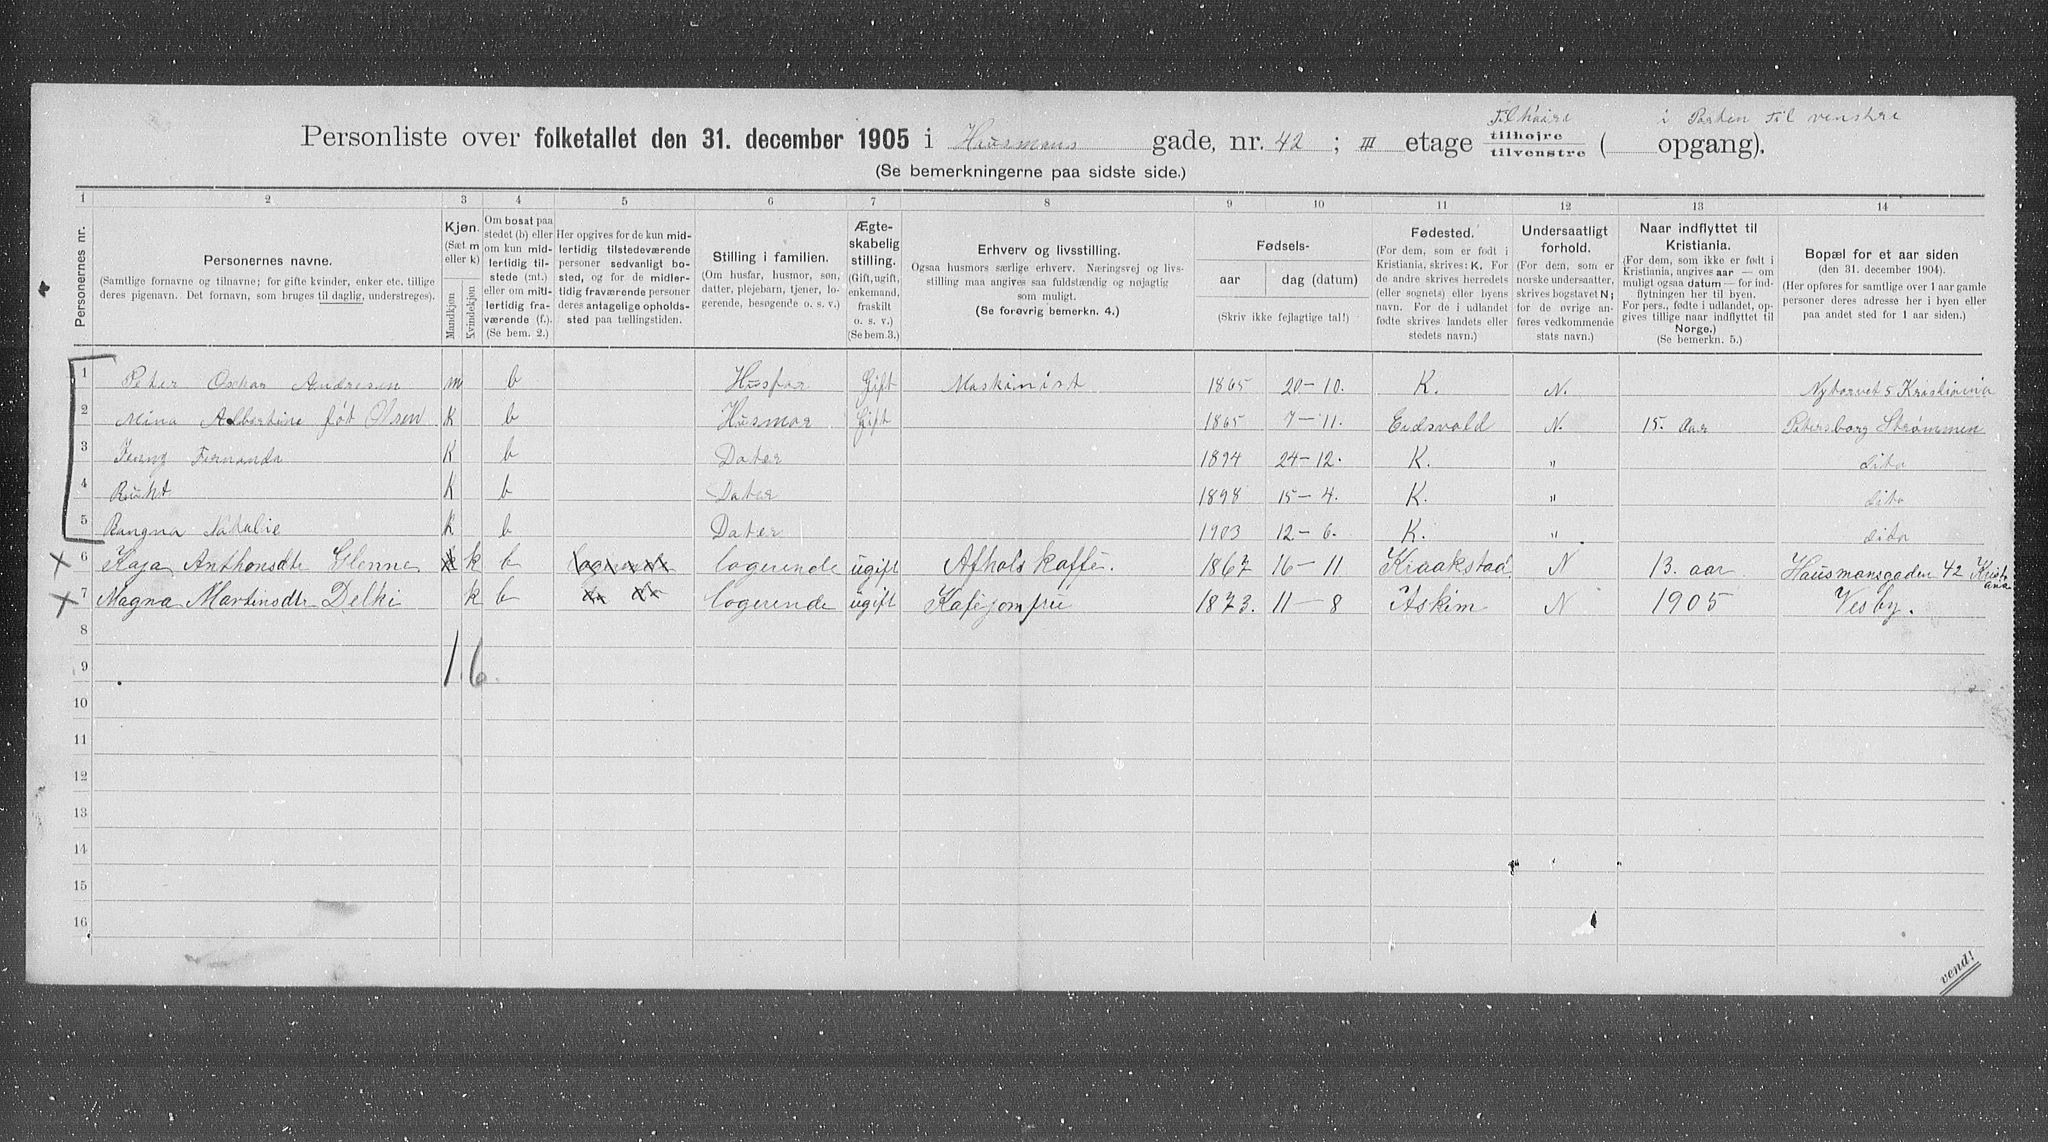 Til höire i Porten til venstre
Personliste over folketallet den 31. december 1905 i Hausmans gade, nr. 42 ; III etage tilhøjre tilvenstre ( opgang).
(Se bemerkningerne paa sidste side.)
1 2 3 4 5 6 7 8 9 10 11 12 13 14
Personernes nr.
Personernes navne.
(Samtlige fornavne og tilnavne; for gifte kvinder, enker etc. tillige deres pigenavn. Det fornavn, som bruges til daglig, understreges).
Kjøn.
(Sæt m eller k)
Mandkjøn
Kvindekjøn
Om bosat paa stedet (b) eller om kun midlertidig tilstede (mt.) eller om midlertidig fraværende (f.).
(Se bem. 2.)
Her opgives for de kun midlertidig tilstedeværende personer sedvanligt bosted, og for de midlertidig fraværende personer deres antagelige opholdssted paa tællingstiden.
Stilling i familien.
(Om husfar, husmor, søn, datter, plejebarn, tjener, logerende, besøgende o. s. v.)
Ægteskabelig stilling.
(Gift, ugift, enkemand, fraskilt o. s. v.)
(Se bem. 3.)
Erhverv og livsstilling.
Ogsaa husmors særlige erhverv. Næringsvej og livsstilling maa angives saa fuldstændig og nøjagtig som muligt.
(Se forøvrig bemerkn. 4.)
Fødsels-
aar
dag (datum)
(Skriv ikke fejlagtige tal!)
Fødested.
(For dem, som er født i Kristiania, skrives: K. For de andre skrives herredets (eller sognets) eller byens navn. For de i udlandet fødte skrives landets eller stedets navn.)
Undersaatligt forhold.
(For dem, som er norske undersaatter, skrives bogstavet N; for de øvrige anføres vedkommende stats navn.)
Naar indflyttet til Kristiania.
(For dem, som ikke er født i Kristiania, angives aar — om muligt ogsaa datum — for indflytningen her til byen. For pers., fødte i udlandet, opgives tillige naar indflyttet til Norge.)
(Se bemerkn. 5.)
Bopæl for et aar siden
(den 31. december 1904).
(Her opføres for samtlige over 1 aar gamle personer deres adresse her i byen eller paa andet sted for 1 aar siden.)
1 Peter Oskar Andresen m b Husfar Gift Maskinist 1865 20-10. K. N. Nytorvet 5 Kristiania
2 Mina Albertine föt Olsen K b Husmor Gift 1865 7-11. Eidsvold N. 15. Aar Petersborg Strømmen
3 Jenny Fernanda K b Dater 1894 24-12. K. " dito
4 Rukt K b Dater 1898 15-4. K. " dito
5 Rangna Natalie K b Dater 1903 12-6. K. " dito
6 Kaja Anthonsdtr Glenne k b logerende ugift Afholskaffe. 1867 16-11 Kraakstad N 13. aar Hausmansgaden 42 Kristiana
7 Magna Martinsdtr Delhi k b logerende ugift Kafejomfru 1873. 11-8 Askim N 1905 Vesby.
8
1 6
9
10
11
12
13
14
15
16
vend!